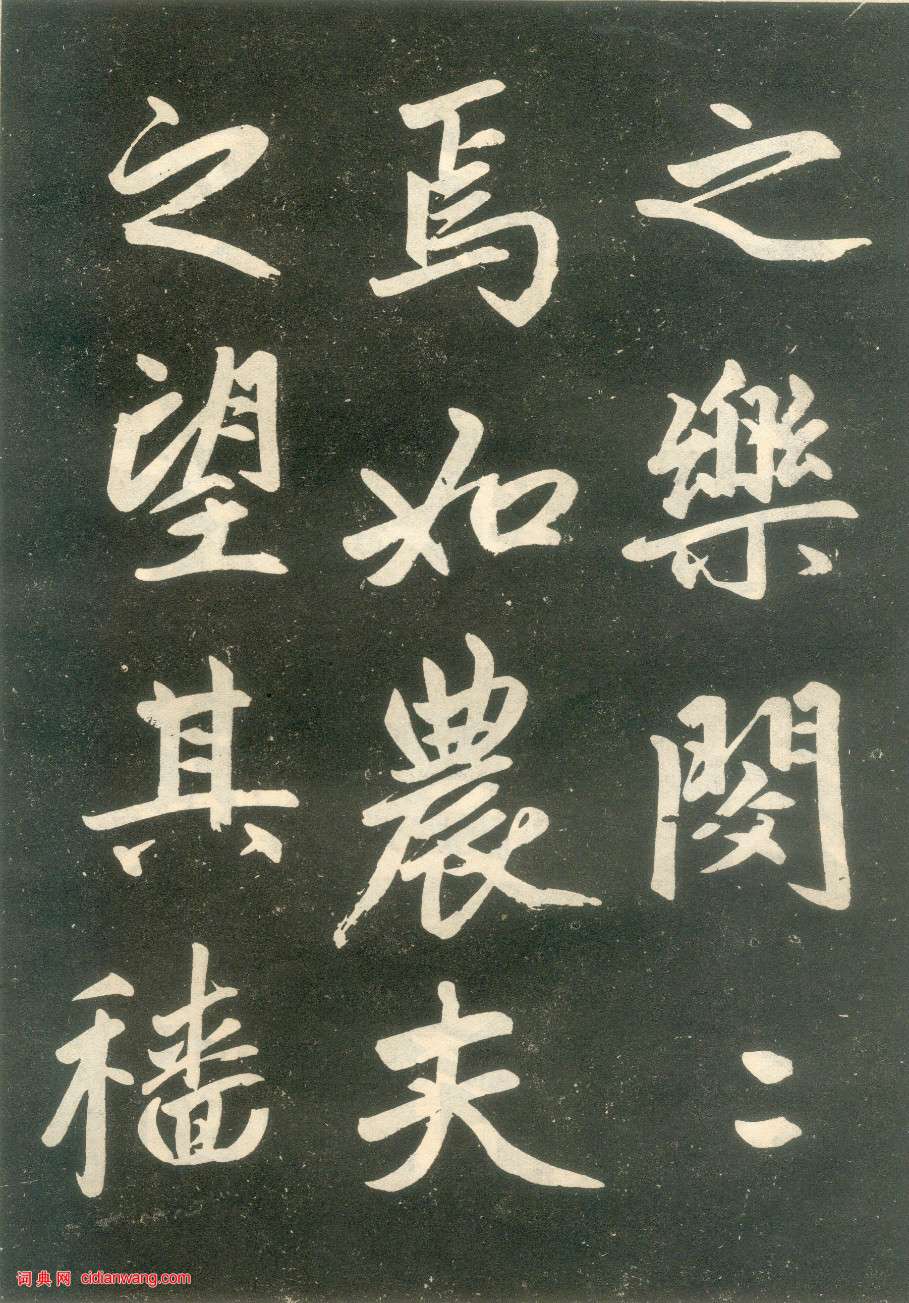 之樂閔〻
焉如農夫
之望其穡
词典网 cidianwang.com